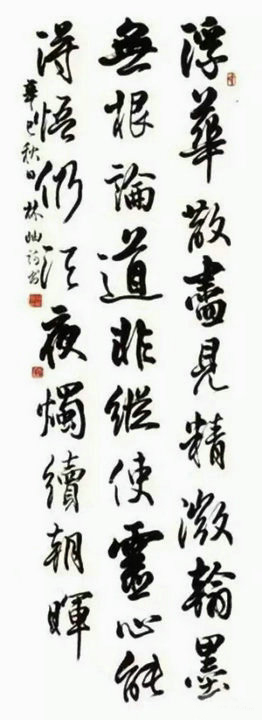 浮華散盡見精微翰墨
無根論道非縱使靈心能
得悟仍須夜燭續朝暉
辛巳秋日林岫